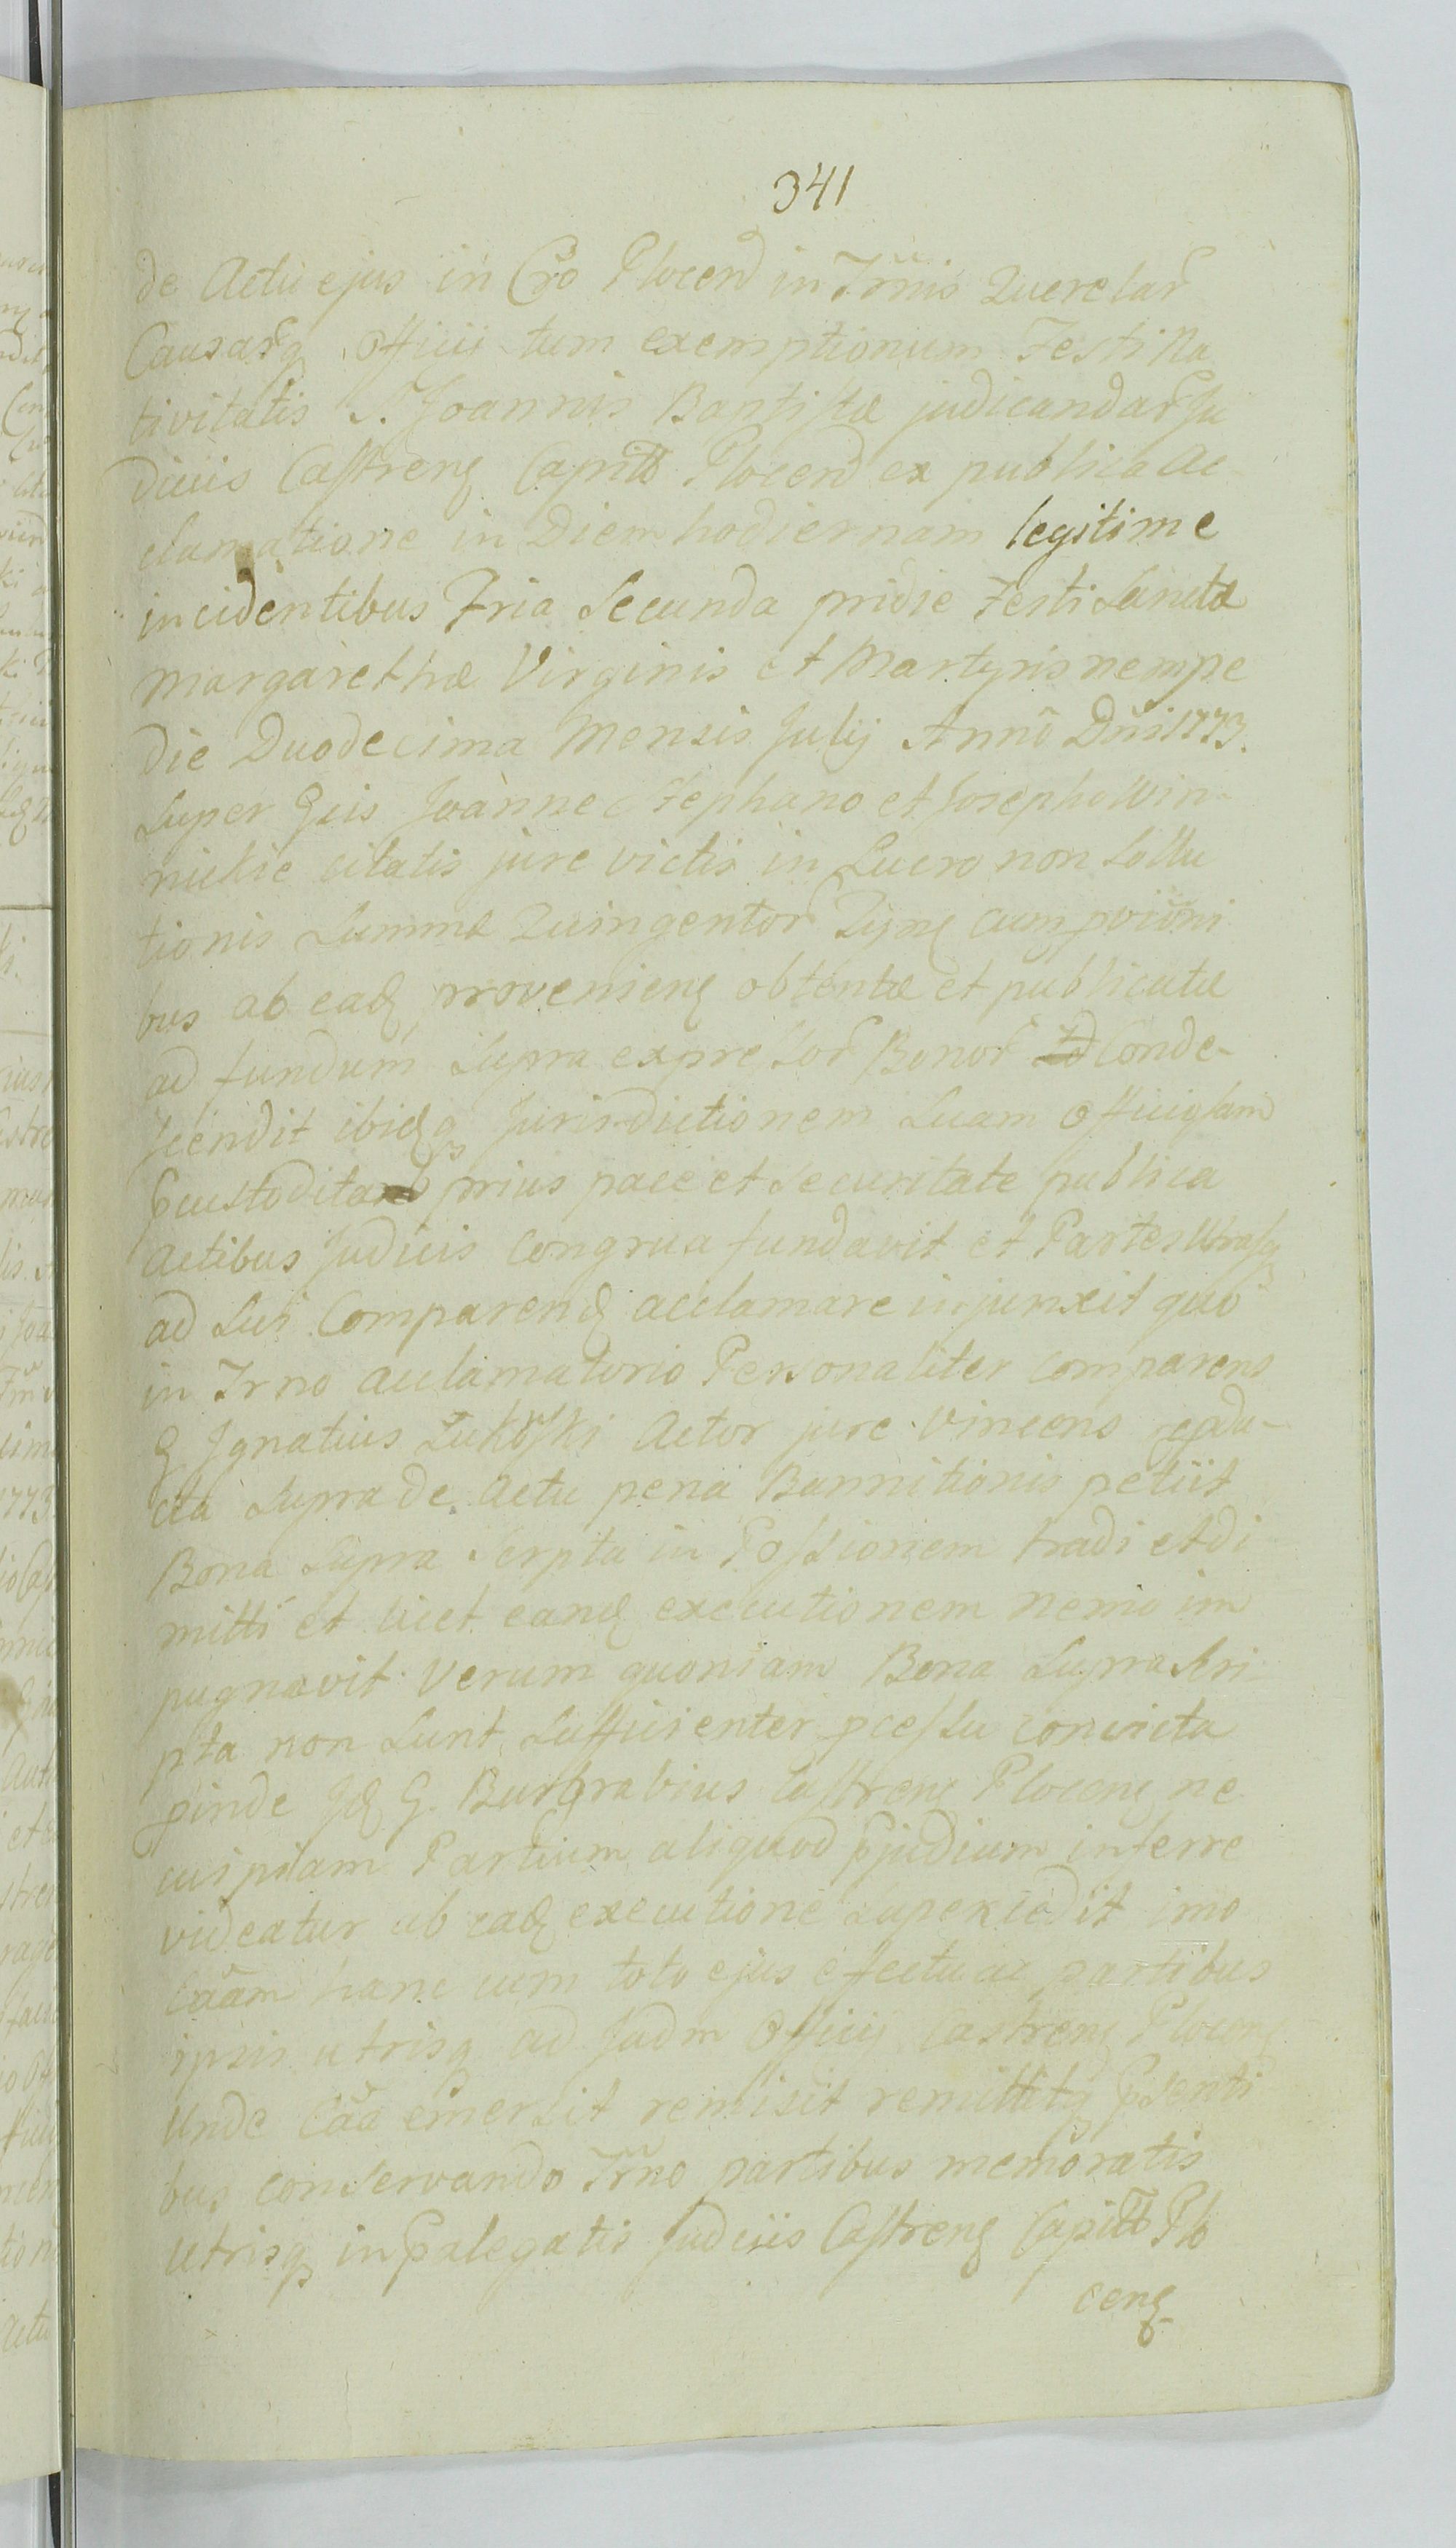 341
de Actu ejus in Cro Plocen in Trnis Querelar
Causarq Officii tum exemptionum Festi Na
tivitatis S. Joannis Baptistæ judicandar Ju
diciis Castren Capitt Plocen ex publica ac
clamatione in Diem hodiernam legitime
incidentibus Fria Secunda pridie Festi Sanctæ
Margarethæ Virginis et Martyris nempe
die Duodecima Mensis Julij Anno Dni 1773.
Super Gsis Joanne Stephano et Josepho Win-
nickie citatis jure victis in Lucro non Sollu
tionis Summæ Quingentor cum prioni
bus ab ead provenien obtentæ et publicatæ
ad fundum Supra expressor Bonor Conde-
scendit ibidq Jurisdictionem Suam Officiosam
pcustodita prius pace et securitate publica
Actibus Judiciis congrua fundavit et Partes Utrasq
ad Sui Comparend acclamare injunxit quo
in Trno acclamatorio Personaliter comparens
G Ignatius Zukowski Actor jure vincens
cta Supra de Actu pena Bannitionis petiit
Bona Supra Scrpta in Possionem tradi et di
mitti et licet eand executionem nemo im
pugnavit Verum quoniam Bona Supra Scri-
pta non Sunt Sufficienter pcessu convicta
pinde Id G. Burgrabius Castren Plocen ne
cuipiam Partium aliquod pjudium inferre
videatur ab ead executione Supersedit imo
Caam hanc cum toto ejus efectu ac partibus
ipsis utrisq ad Judm Officii Castren Plocen
unde Caa emersit remisit remittitq psenti
bus conservando Trno partibus memoratis
utrisq in palegatis Judciis Castren Capitt Plo
cen